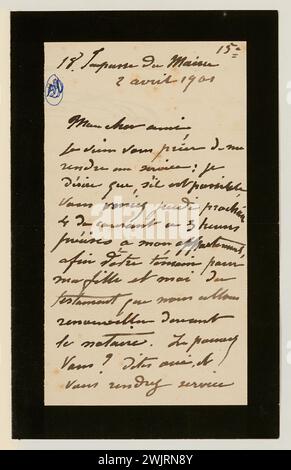 15=
18. Impasse du Maine
2 avril 1901
Mon cher ami
Je viens vous prier de me
rendre un service: je
désire que, s'il est possible
vous veniez jeudi prochain
4 du courant à 3 heures
précises à mon appartement,
afin d'être témoin pour
ma fille et moi du
testament que nous allons
renouveller devant
le notaire. Le pouvez
vous? dites oui, et
vous rendrez service
alamy
Image ID: 2WJRN8Y
www.alamy.com